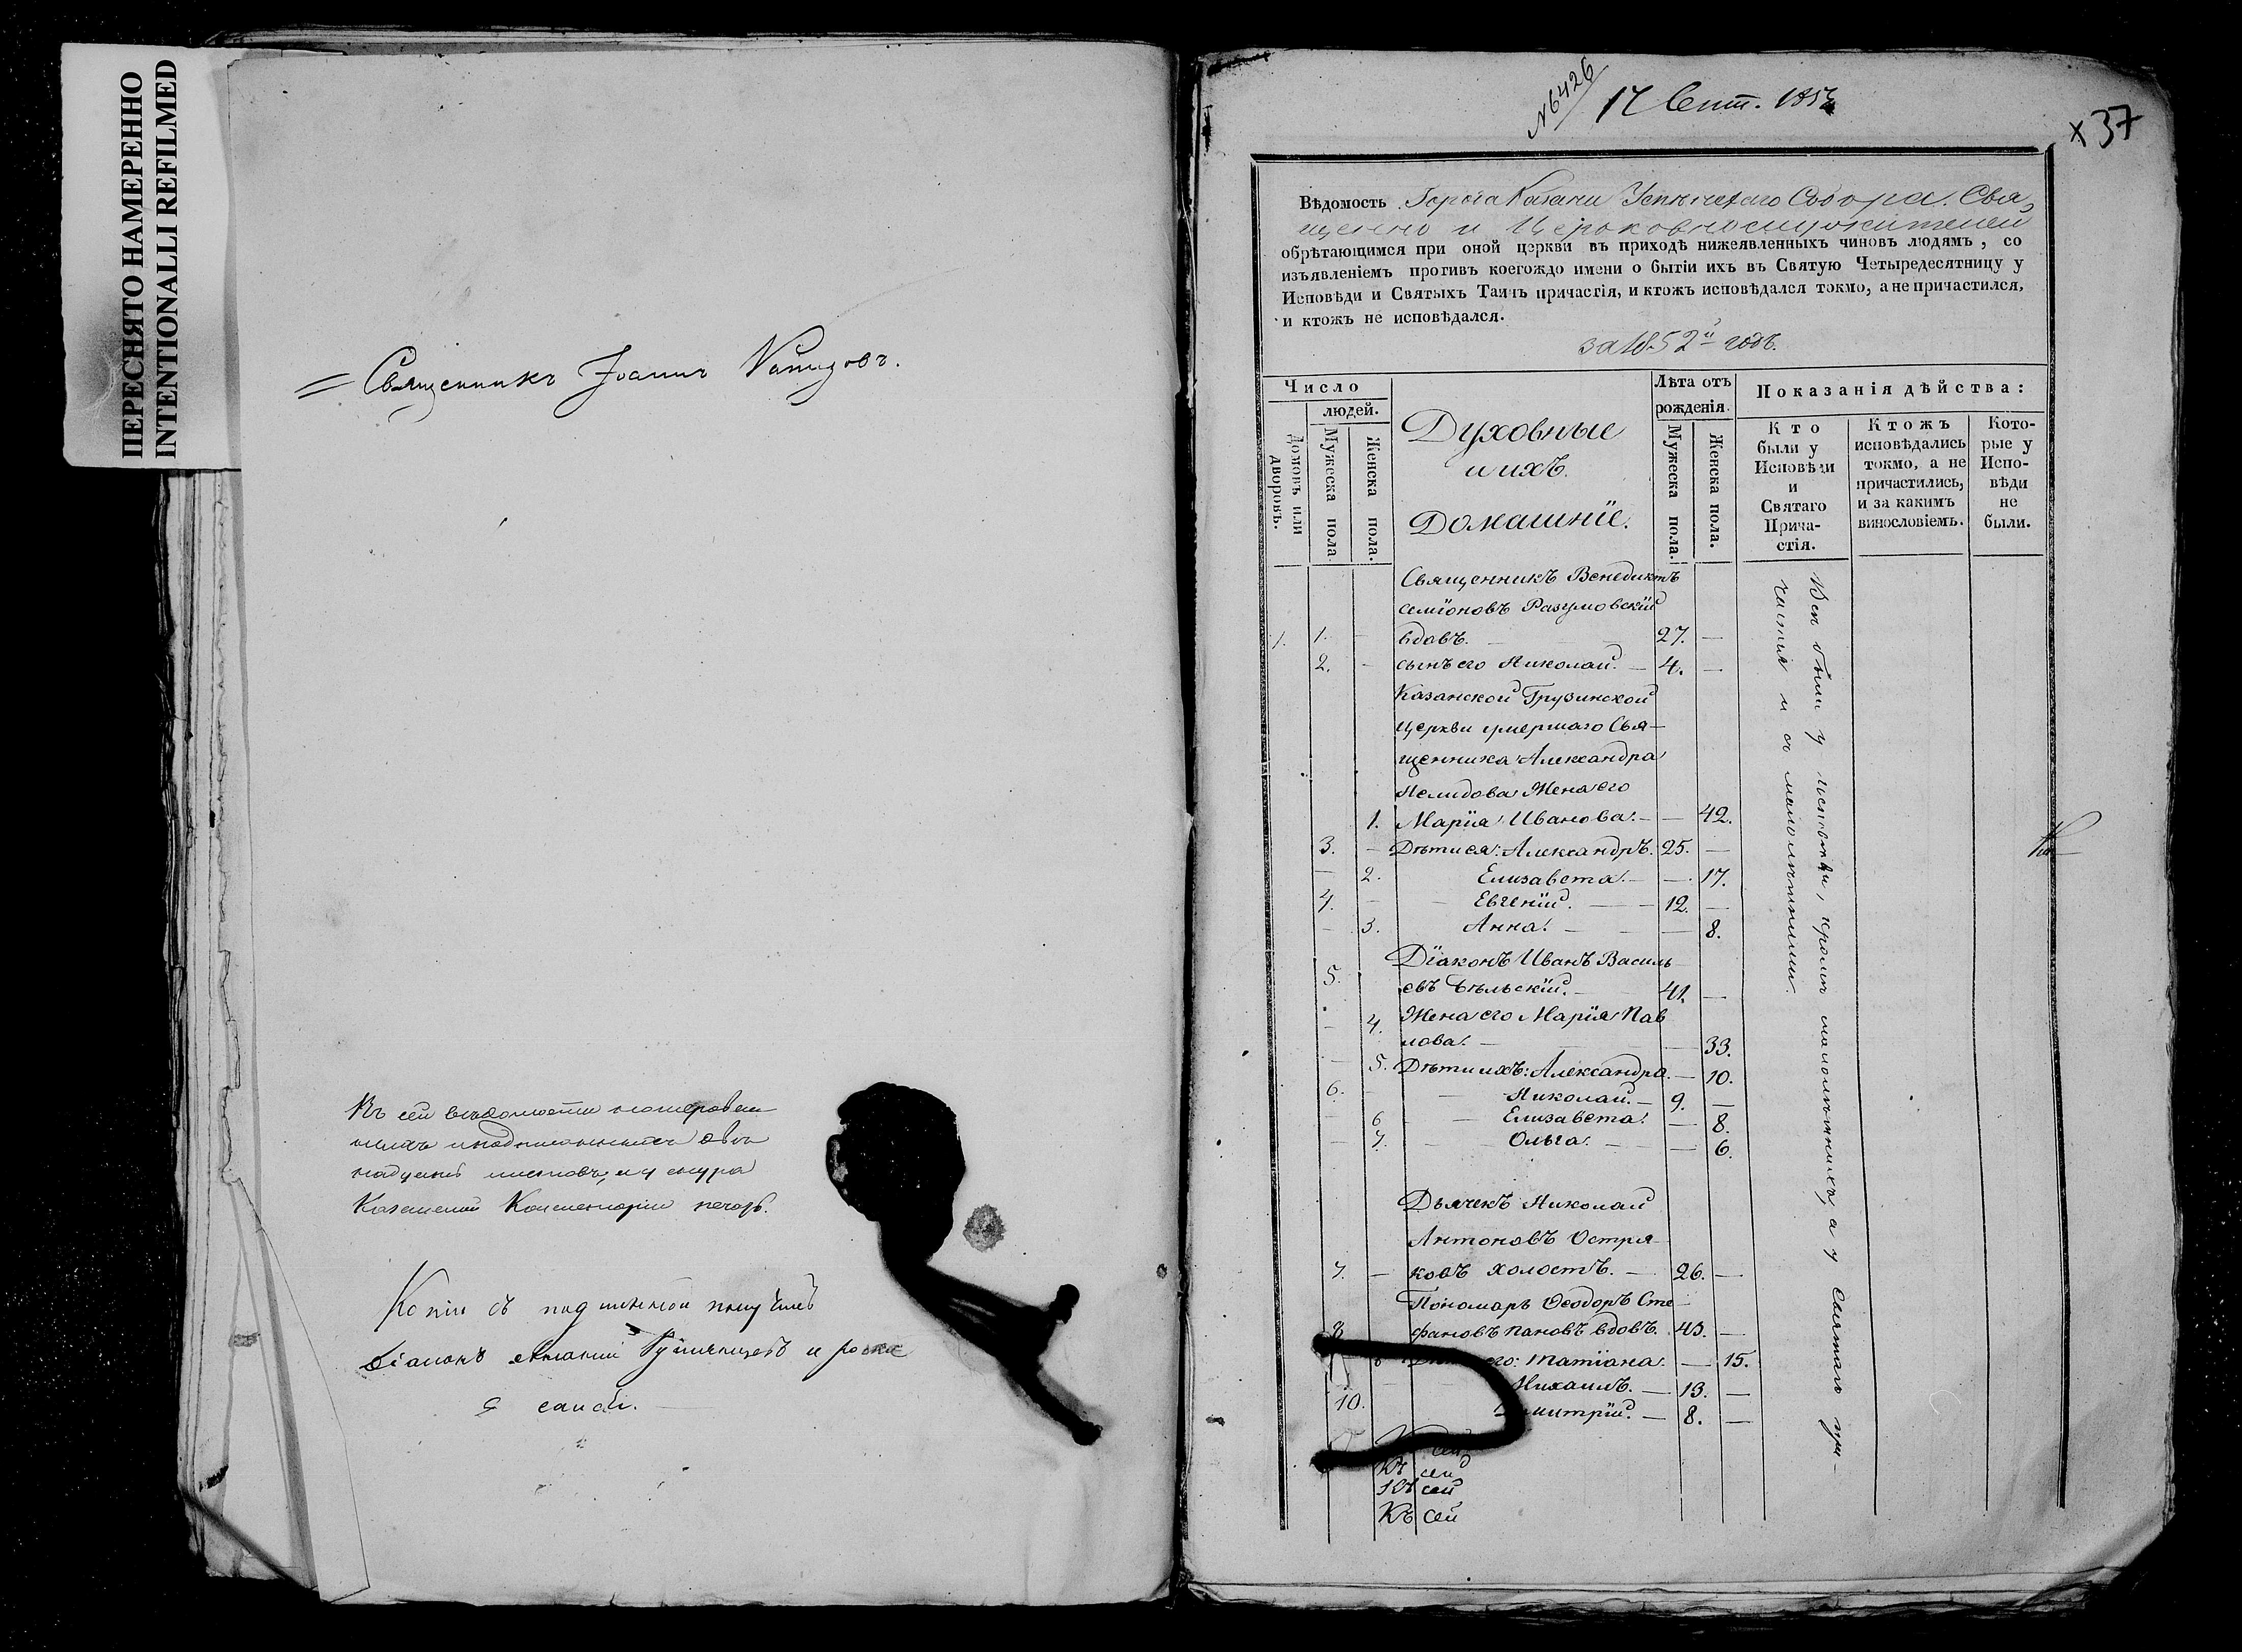 ПЕРЕСНЯТО НАМЕРЕННО
INTENTIONALLI REFILMED
Священникъ Іоаннъ
Къ сей вѣдомости
листовъ, и у шнура
Казанской Консисторіи печать.
Копіи съ подлинной получилъ
Діаконъ и росписался
№ 6426
17 Сент. 1852
х 37
Вѣдомость Города Казани Собора. Свя-
щенно и Церковнослужителей
обрѣтающимся при оной церкви въ приходѣ нижеявленныхъ чиновъ людямъ, со
изъявленіемъ противъ коегождо имени о бытіи ихъ въ Святую Четыредесятницу у
Исповѣди и Святыхъ Таинъ причастія, и ктожъ исповѣдался токмо, а не причастился,
и ктожъ не исповѣдался.
за 1852й годъ.
Число
людей.
Домовъ или дворовъ.
Мужеска пола
Женска пола.
Духовные
и ихъ
Домашніе.
Лѣта отъ
рожденія.
Мужеска пола.
Женска пола.
Показанія дѣйства:
Кто
были у
Исповѣди
и
Святаго
Прича-
стія.
Ктожъ
исповѣдались
токмо, а не
причастились,
и за какимъ
винословіемъ.
Кото-
рые у
Испо-
вѣди
не
были.
Священникъ Венедиктъ
Семіоновъ Разумовскій
1. 1. - вдовъ. 27. —
2. - сынъ его Николай. — 4. —
Казанской Грузинской
Церкви умершаго Свя-
щенника Александра
Нелидова Жена его
1. Марія Иванова. — — 42.
3. - Дѣти ея: Александръ. 25. —
— 2. Елизавета. — — 17.
4. - Евгеній. — 12. —
- 3. Анна. — — 8.
Діаконъ Иванъ Василь-
5. евъ Бѣльскій. — 41. —
- 4. Жена его Марія Пав
лова. — — 33.
- 5. Дѣти ихъ: Александра. — 10.
6. - Николай. — 9. —
- 6 Елизавета. — 8.
- 7. Ольга. — — 6.
Дьячекъ Николай
Антоновъ Остря-
7. — ковъ холостъ. — 26. —
Пономарь Ѳеодоръ Сте-
8 фановъ Пановъ вдовъ. 43. —
его: Татіана. — 15.
Михаилъ. — 13. —
10. Димитрій. — 8. —
сей
Къ сей
Къ сей
Къ сей
Всѣ были у исповѣди, кромѣ малолѣтнихъ, а у Святаго при-
частія и съ малолѣтними.